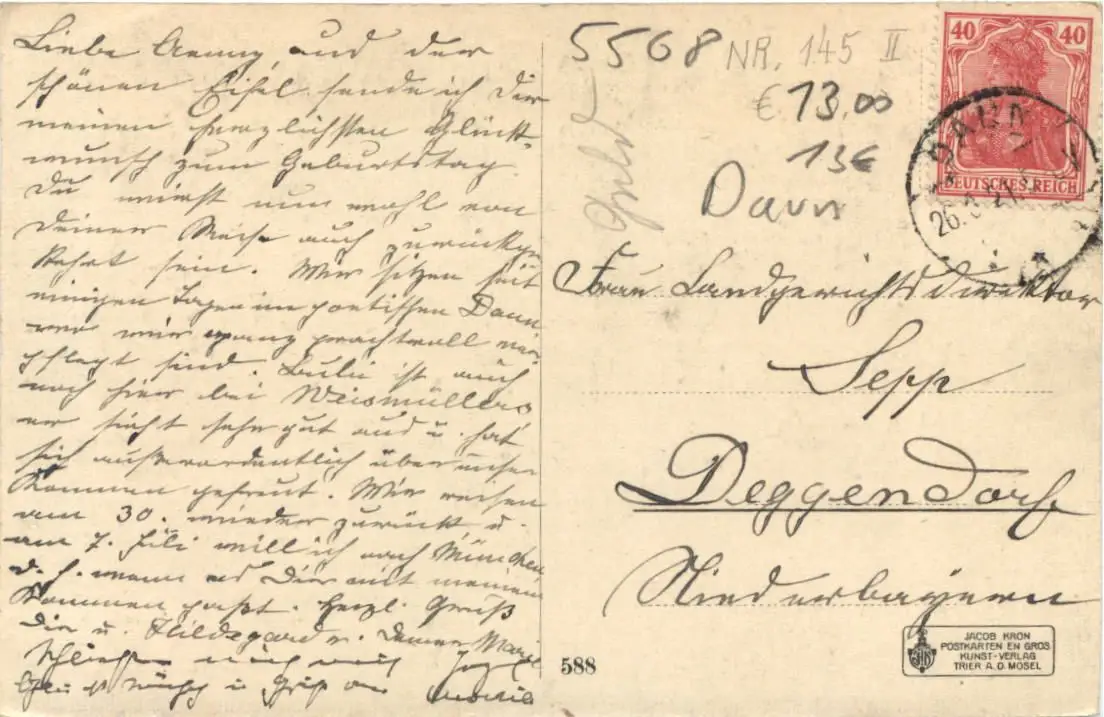 Liebe Anny, aus der
schönen Eifel sende ich Dir
meinen herzlichsten Glück-
wunsch zum Geburtstag.
Du wirst nun wohl von
Deiner Reise auch zurückge-
kehrt sein. Wir sitzen seit
einigen Tagen im poetischen Daun
wo wir ganz prachtvoll ver-
pflegt sind. ist auch
noch hier bei Weismüllers,
er sieht sehr gut aus u. hat
sich außerordentlich über unser
Kommen gefreut. Wir reisen
am 30. wieder zurück u.
am 7. Juli will ich nach München
d. h. wenn es Dir mit meinem
Kommen paßt. Herzl. Gruß
Dir u. Hildegard v. Deiner
5568 NR. 145 II
€ 13,00
13€
Daun
Geld
40 40
DEUTSCHES REICH
DAUN
26.
Frau Landgerichtsdirektor
Sepp
Deggendorf
Niederbayern
588
JACOB KRON
POSTKARTEN EN GROS
KUNST-VERLAG
TRIER A. D. MOSEL